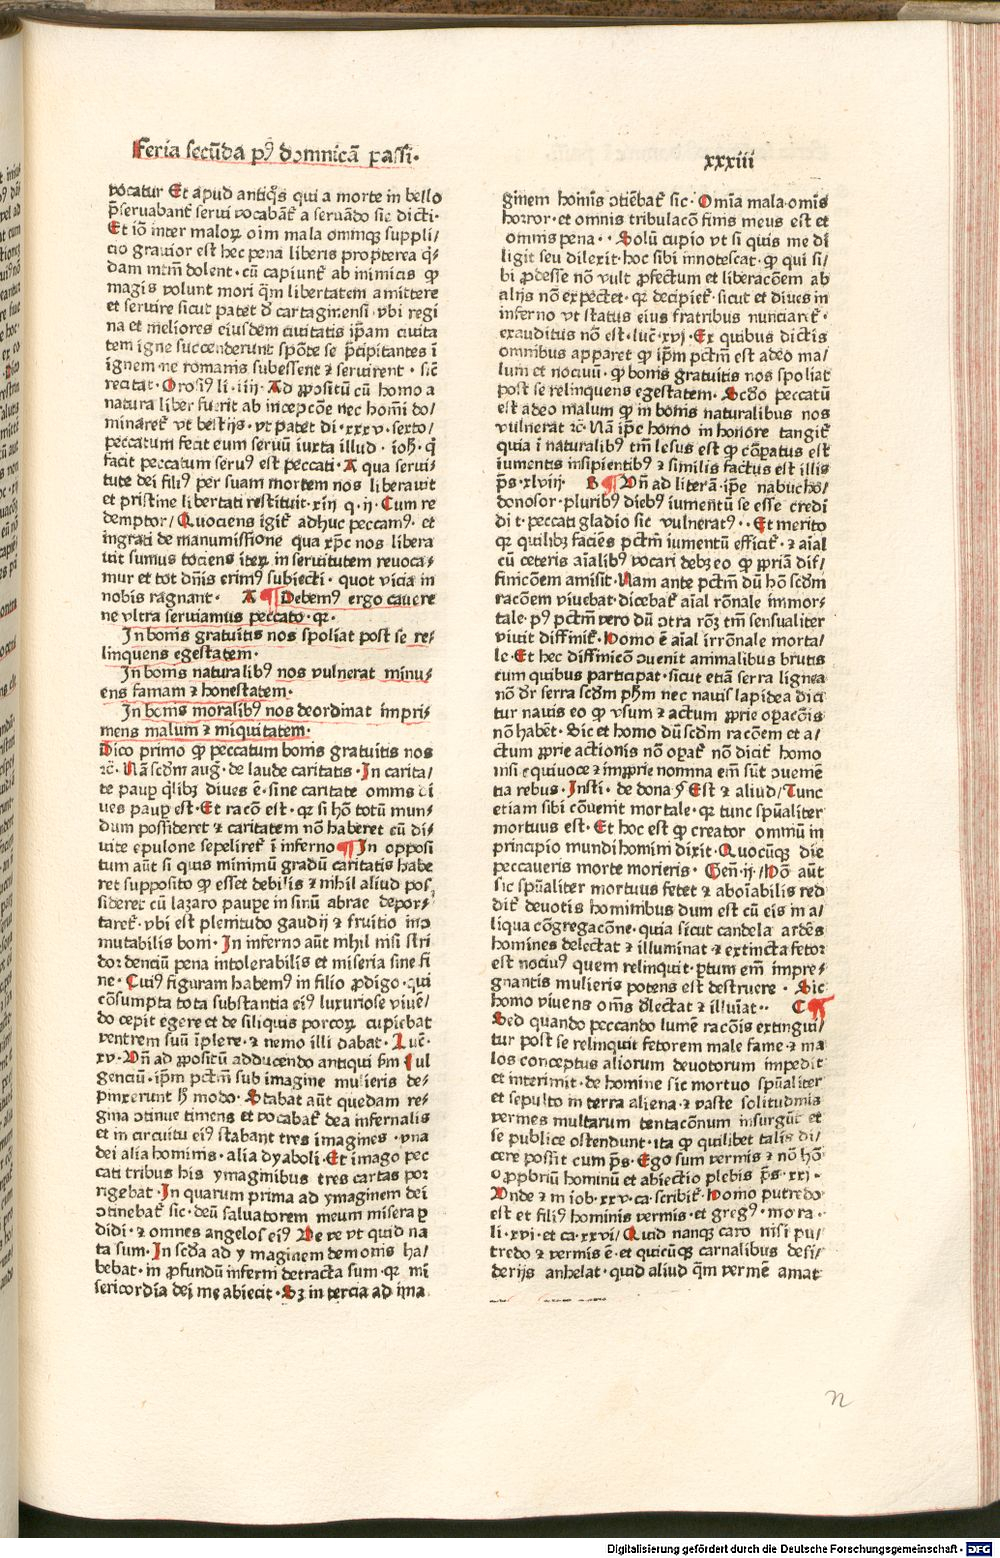 Feria secūda pꝰ domnicā passi·
xxxiii
vocatur Et apud antiqͦs qui a morte in bello
p̄seruabantᷣ serui vocabātᷣ a seruādo sic dicti·
Et iō inter malorꝝ oīm mala omniūqꝫ suppli/
cio grauior est hec pena liberis propterea q̇⸗
dam mtm̄ dolent· cū capiuntᷣ ab inimicis ꝙ
magis volunt mori q̄m libertatem amittere
et seruire sicut patet ð cartaginensi· vbi regi
na et meliores eiusdem ciuitatis ip̄am ciuita
tem igne succenderunt spōte se p̄cipitantes ī
ignem ne romanis subessent ⁊ seruirent· sic̄
recitat· Orosiꝰ li· iiij· Ad ꝓpositū cū homo a
natura liber fuerit ab incepcōe nec homī do/
minaretᷣ vt bestijs· vt patet di· xxxv· sexto/
peccatum fecit eum seruū iuxta illud· ioh̄· q̄
facit peccatum seruꝰ est peccati· A qua serui⸗
tute dei filiꝰ per suam mortem nos liberauit
et pristine libertati restituit· xiij q· ij· Cum re
demptor/ Quociens igitᷣ adhuc peccamꝰ· et
ingrati de manumissione qua xp̄c nos libera
uit sumus tociens iterꝝ in seruitutem reuoca⸗
mur et tot dn̄is erimꝰ subiecti· quot vicia in
nobis ragnant· A ¶ Debemꝰ ergo cauere
ne vltra seruiamus peccato· qꝛ·
In bonis gratuitis nos spoliat post se re⸗
linquens egestatem·
In bonis naturalibꝰ nos vulnerat minu⸗
ens famam ⁊ honestatem·
In bonis moralibꝰ nos deordinat impri⸗
mens malum ⁊ iniquitatem·
Dico primo ꝙ peccatum bonis gratuitis nos
⁊c· Nā scd̄m auḡ· de laude caritatis· In carita/
te paup̄ q̄libꝫ diues ē· sine caritate omnis di
ues paup̄ est· Et racō est· qꝛ si hō totū mun⸗
dum possideret ⁊ caritatem nō haberet cū di⸗
uite epulone sepeliretᷣ ī inferno ¶ In opposi
tum aūt si quis minimū gradū caritatis habe
ret supposito ꝙ esset debilis ⁊ nihil aliud pos⸗
sideret cū lazaro paupe in sinū abrae depor⸗
taretᷣ· vbi est plenitudo gaudij ⁊ fruitio ino
mutabilis boni· In inferno aūt nihil nisi stri
dor denciū pena intolerabilis et miseria sine fi
ne· Cuiꝰ figuram habemꝰ in filio ꝓdigo· qui
cōsumpta tota substantia eiꝰ luxuriose viuē/
do cepit egere et de siliquis porcorꝝ cupiebat
ventrem suū īplere· ⁊ nemo illi dabat· Luc̄·
xv· Vn̄ ad ꝓpositū adducendo antiqui sm̄ ful
genciū· ip̄m pctm̄ sub imagine mulieris de⸗
pinxerunt h̄ modo· Stabat aūt quedam re⸗
gina ↄtinue timens et vocabatᷣ dea infernalis
et in circuitu eiꝰ stabant tres imagines· vna
dei alia hominis· alia dyaboli· Et imago pec
cati tribus his ymaginibus tres cartas por
rigebat· In quarum prima ad ymaginem dei
ↄtinebatᷣ sic· deū saluatorem meum misera ꝑ
didi· ⁊ omnes angelos eiꝰ Ve ve vt quid na
ta sum· In scd̄a ad ymaginem demonis ha/
bebat· in ꝓfundū inferni detracta sum· qꝛ mi
sericordia dei me abiecit· Sꝫ in tercia ad ima
ginem homīs ↄtiēbatᷣ sic· Omīa mala omīs
horror· et omnis tribulacō finis meus est et
omnis pena·· Solū cupio vt si quis me di
ligit seu dilexit· hoc sibi innotescat· ꝙ qui si/
bi ꝓdesse nō vult ꝓfectum et liberacōem ab
alijs nō expectet· qꝛ decipietᷣ· sicut et diues in
inferno vt status eius fratribus nunciaretᷣ·
exauditus nō est· luc̄· xvj· Ex quibus dictis
omnibus apparet ꝙ ip̄m pctm̄ est adeo ma/
lum et nociuū· ꝙ bonis gratuitis nos spoliat
post se relinquens egestatem· Scd̄o peccatū
est adeo malum ꝙ in bonis naturalibus nos
vulnerat ⁊c· Nā ip̄e homo in honore tangitᷣ
quia ī naturalibꝰ tm̄ lesus est ꝙ cōpatus est
iumentis insipientibꝰ ⁊ similis factus est illis
p̄s· xlviij· B ¶ Vn̄ ad literā ip̄e nabucho/
donosor· pluribꝰ diebꝰ iumentū se esse credi
di t· peccati gladio sic vulneratꝰ·· Et merito
qꝛ quilibꝫ faciēs pctm̄ iumentū efficitᷣ· ⁊ aīal
cū ceteris aīalibꝰ vocari debꝫ eo ꝙ ꝓpriā dif/
finicōem amisit· Nam ante pctm̄ dū hō scd̄m
racōem viuebat· dicebatᷣ aīal rōnale immor⸗
tale· pꝰ pctm̄ vero dū ↄtra rōꝫ tm̄ sensualiter
viuit diffinitᷣ· Homo ē aīal irrōnale morta/
le· Et hec diffinicō ↄuenit animalibus brutis
cum quibus participat· sicut etiā serra lignea
nō dr̄ serra scd̄m ph̄m nec nauis lapidea dici
tur nauis eo ꝙ vsum ⁊ actum ꝓprie oꝑacōis
nō habēt· Sic et homo dū scd̄m racōem et a/
ctum ꝓprie actionis nō oꝑatᷣ nō dicitᷣ homo
nisi equiuoce ⁊ impprie nomina em̄ sūt ↄuenīe
tia rebus· Insti· de dona § Est ⁊ aliud/ Tunc
etiam sibi cōuenit mortale· qꝛ tunc spūaliter
mortuus est· Et hoc est ꝙ creator omniū in
principio mundi homini dixit· Quocūqꝫ die
peccaueris morte morieris· Gen̄· ij· / Hō aūt
sic spūaliter mortuus fetet ⁊ aboīabilis red
ditᷣ deuotis hominibus dum est cū eis in a/
liqua cōgregacōne· quia sicut candela ardēs
homines delectat ⁊ illuminat ⁊ extincta fetor
est nociuꝰ quem relinquit· ptum em̄ impre⸗
gnantis mulieris potens est destruere· Sic
homo viuens om̄s dlectat ⁊ illuīat·· C ¶
Sed quando peccando lumē racōis extingui/
tur post se relinquit fetorem male fame· ⁊ ma
los conceptus aliorum deuotorum impedit
et interimit· de homine sic mortuo spūaliter
et sepulto in terra aliena· ⁊ vaste solitudinis
vermes multarum tentacōnum insurgūt et
se publice ostendunt· ita ꝙ quilibet talis di/
cere possit cum p̄s· Ego sum vermis ⁊ nō hō
oꝓpbriū hominū et abiectio plebis p̄s· xxj·
Vnde ⁊ in iob· xxv· ca· scribitᷣ· Homo putredo
est et filiꝰ hominis vermis· et gregꝰ· mora·
li· xvi· et ca· xxvi/ Quid nanqꝫ caro nisi pu/
tredo ⁊ vermis ē· et quicūqꝫ carnalibus desi/
derijs anhelat· quid aliud q̄m vermē amat
n
Digitalisierung gefördert durch die Deutsche Forschungsgemeinschaft - DFG